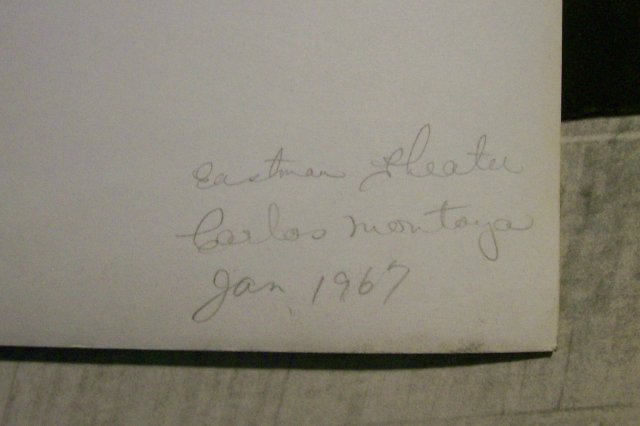 Eastman Theater
Carlos Montoya
Jan 1967